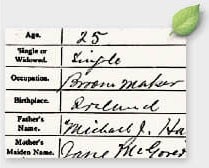 Age. 25
Single or Widowed. Single
Occupation. Broom Maker
Birthplace. Ireland
Father's Name. Michael J. Ha
Mother's Maiden Name. Jane McGover